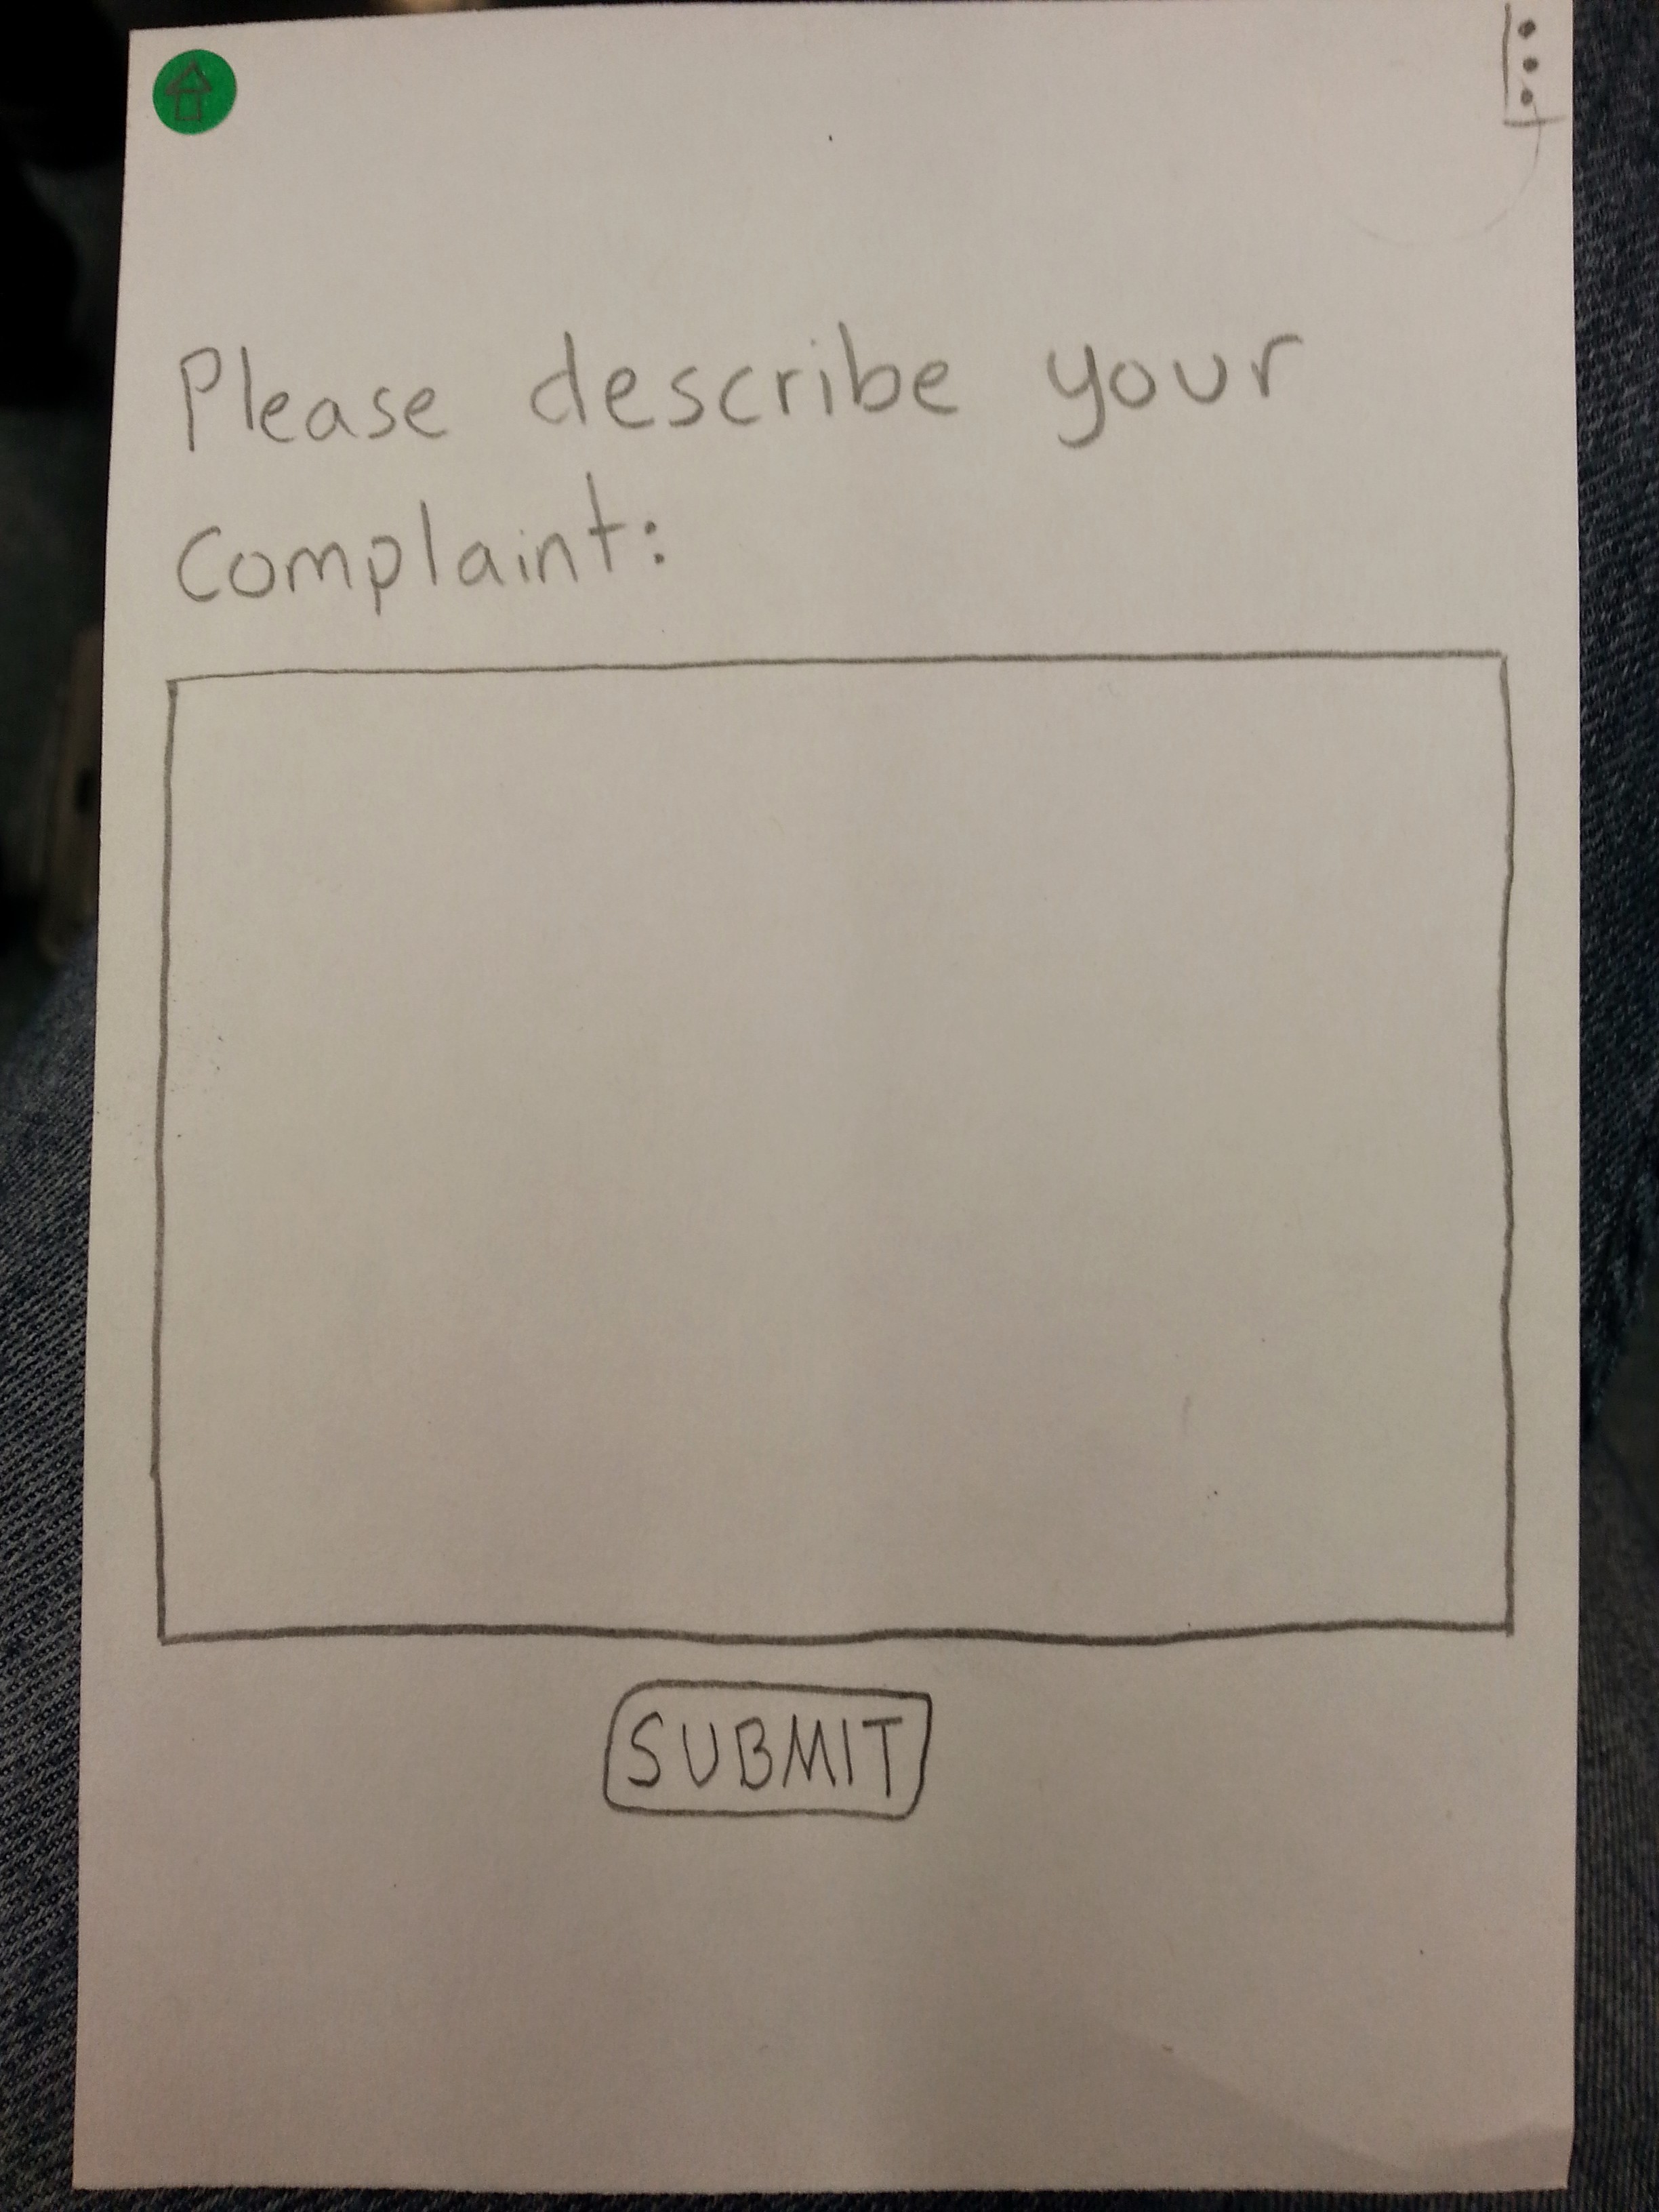 Please describe your
Complaint:
SUBMIT